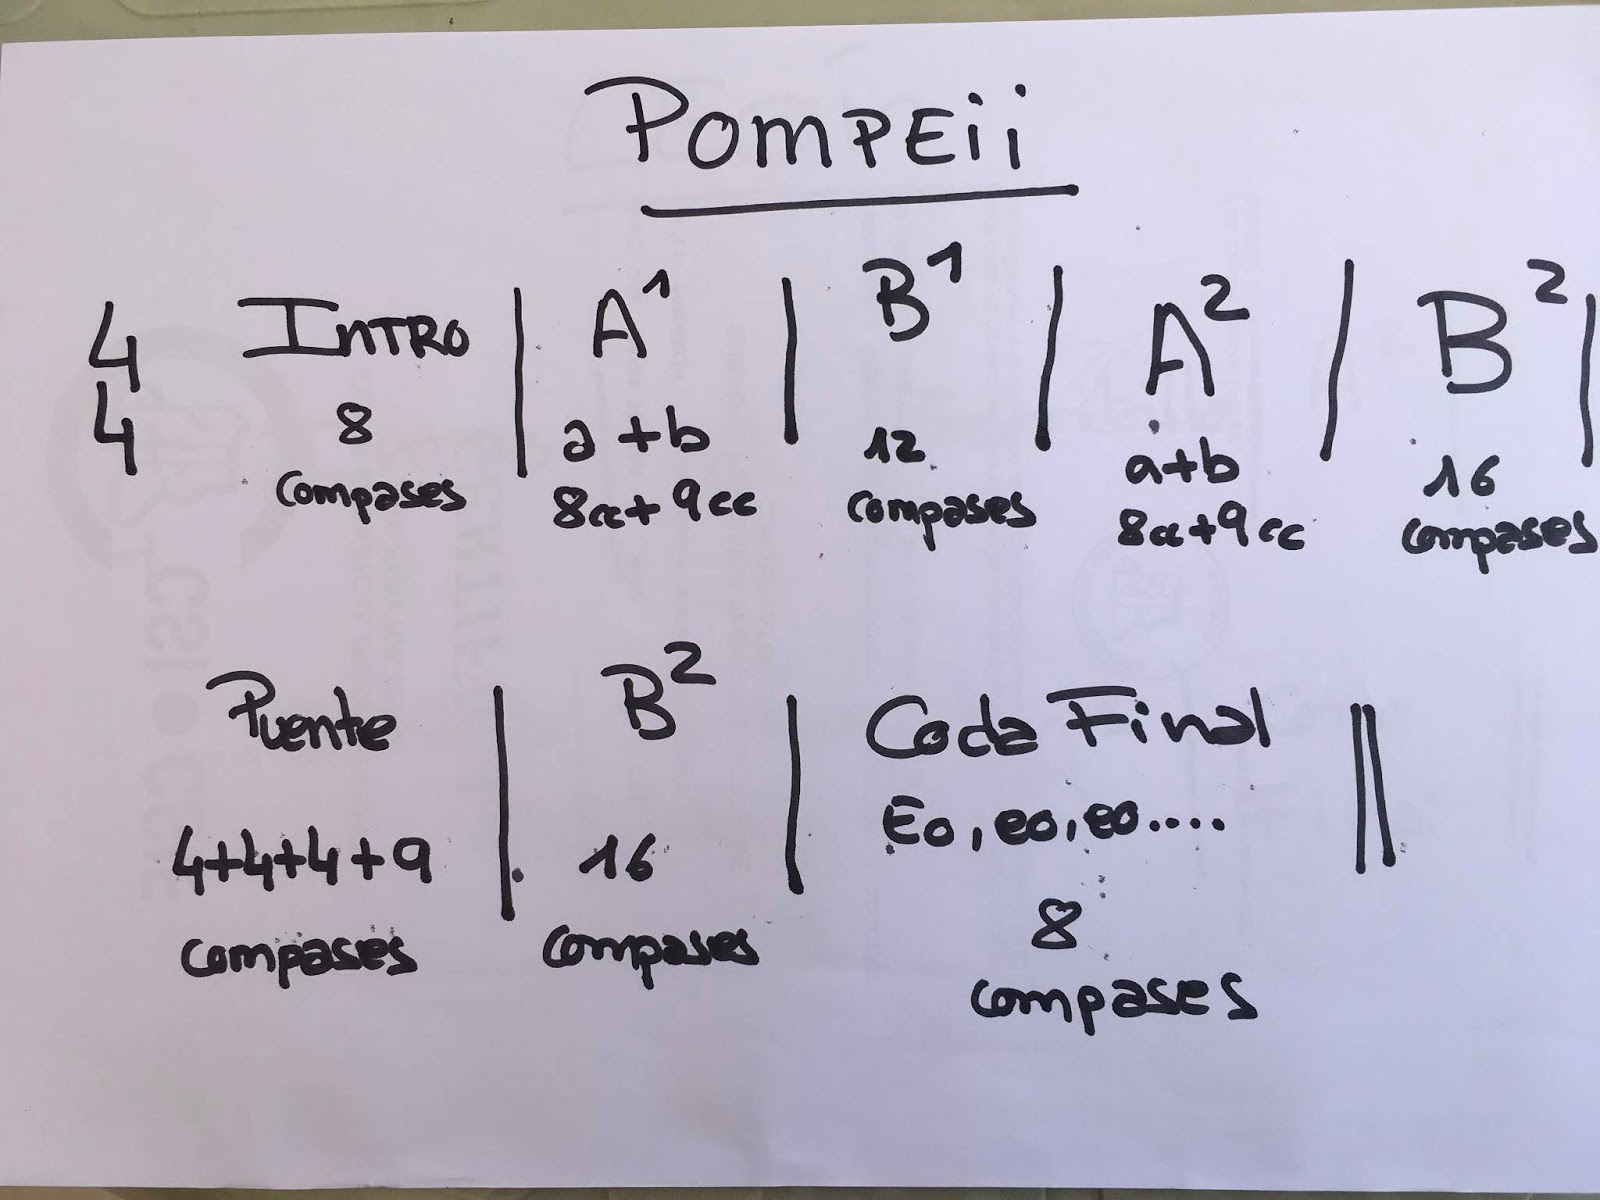 POMPEii
4/4 INTRO | A¹ | B¹ | A² | B² |
8 a+b 12 a+b 16
compases 8cc+9cc compases 8cc+9cc compases
Puente | B² | Coda Final ||
Eo, eo, eo....
4+4+4+9 16 8
compases compases compases